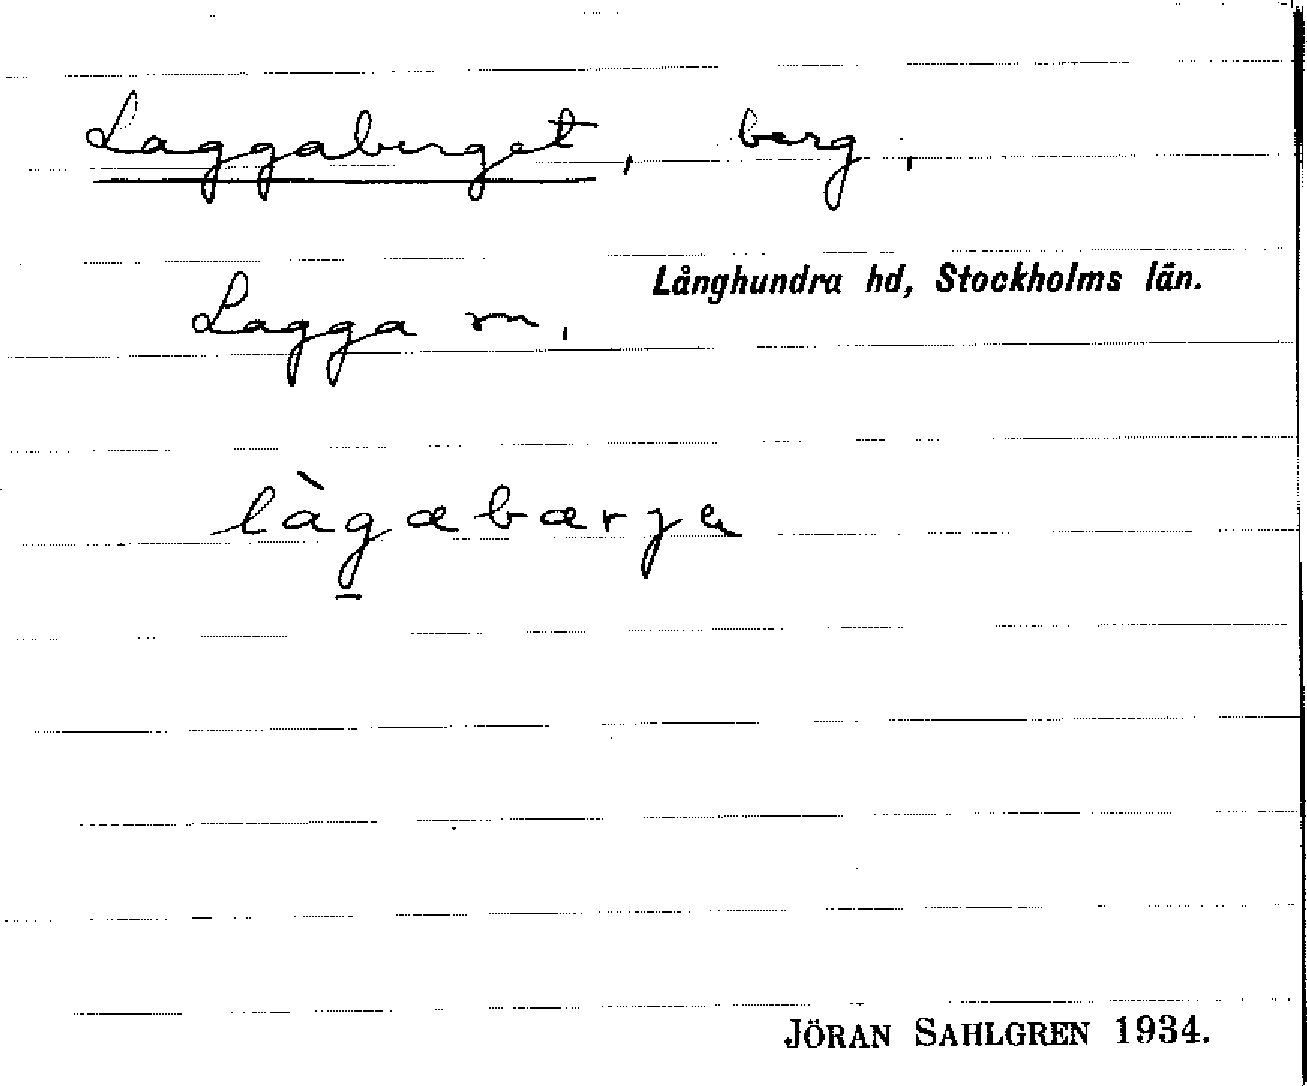 Laggaberget, berg,
Långhundra hd, Stockholms län.
Lagga sn,
làg̱abærjɐ
JÖRAN SAHLGREN 1934.